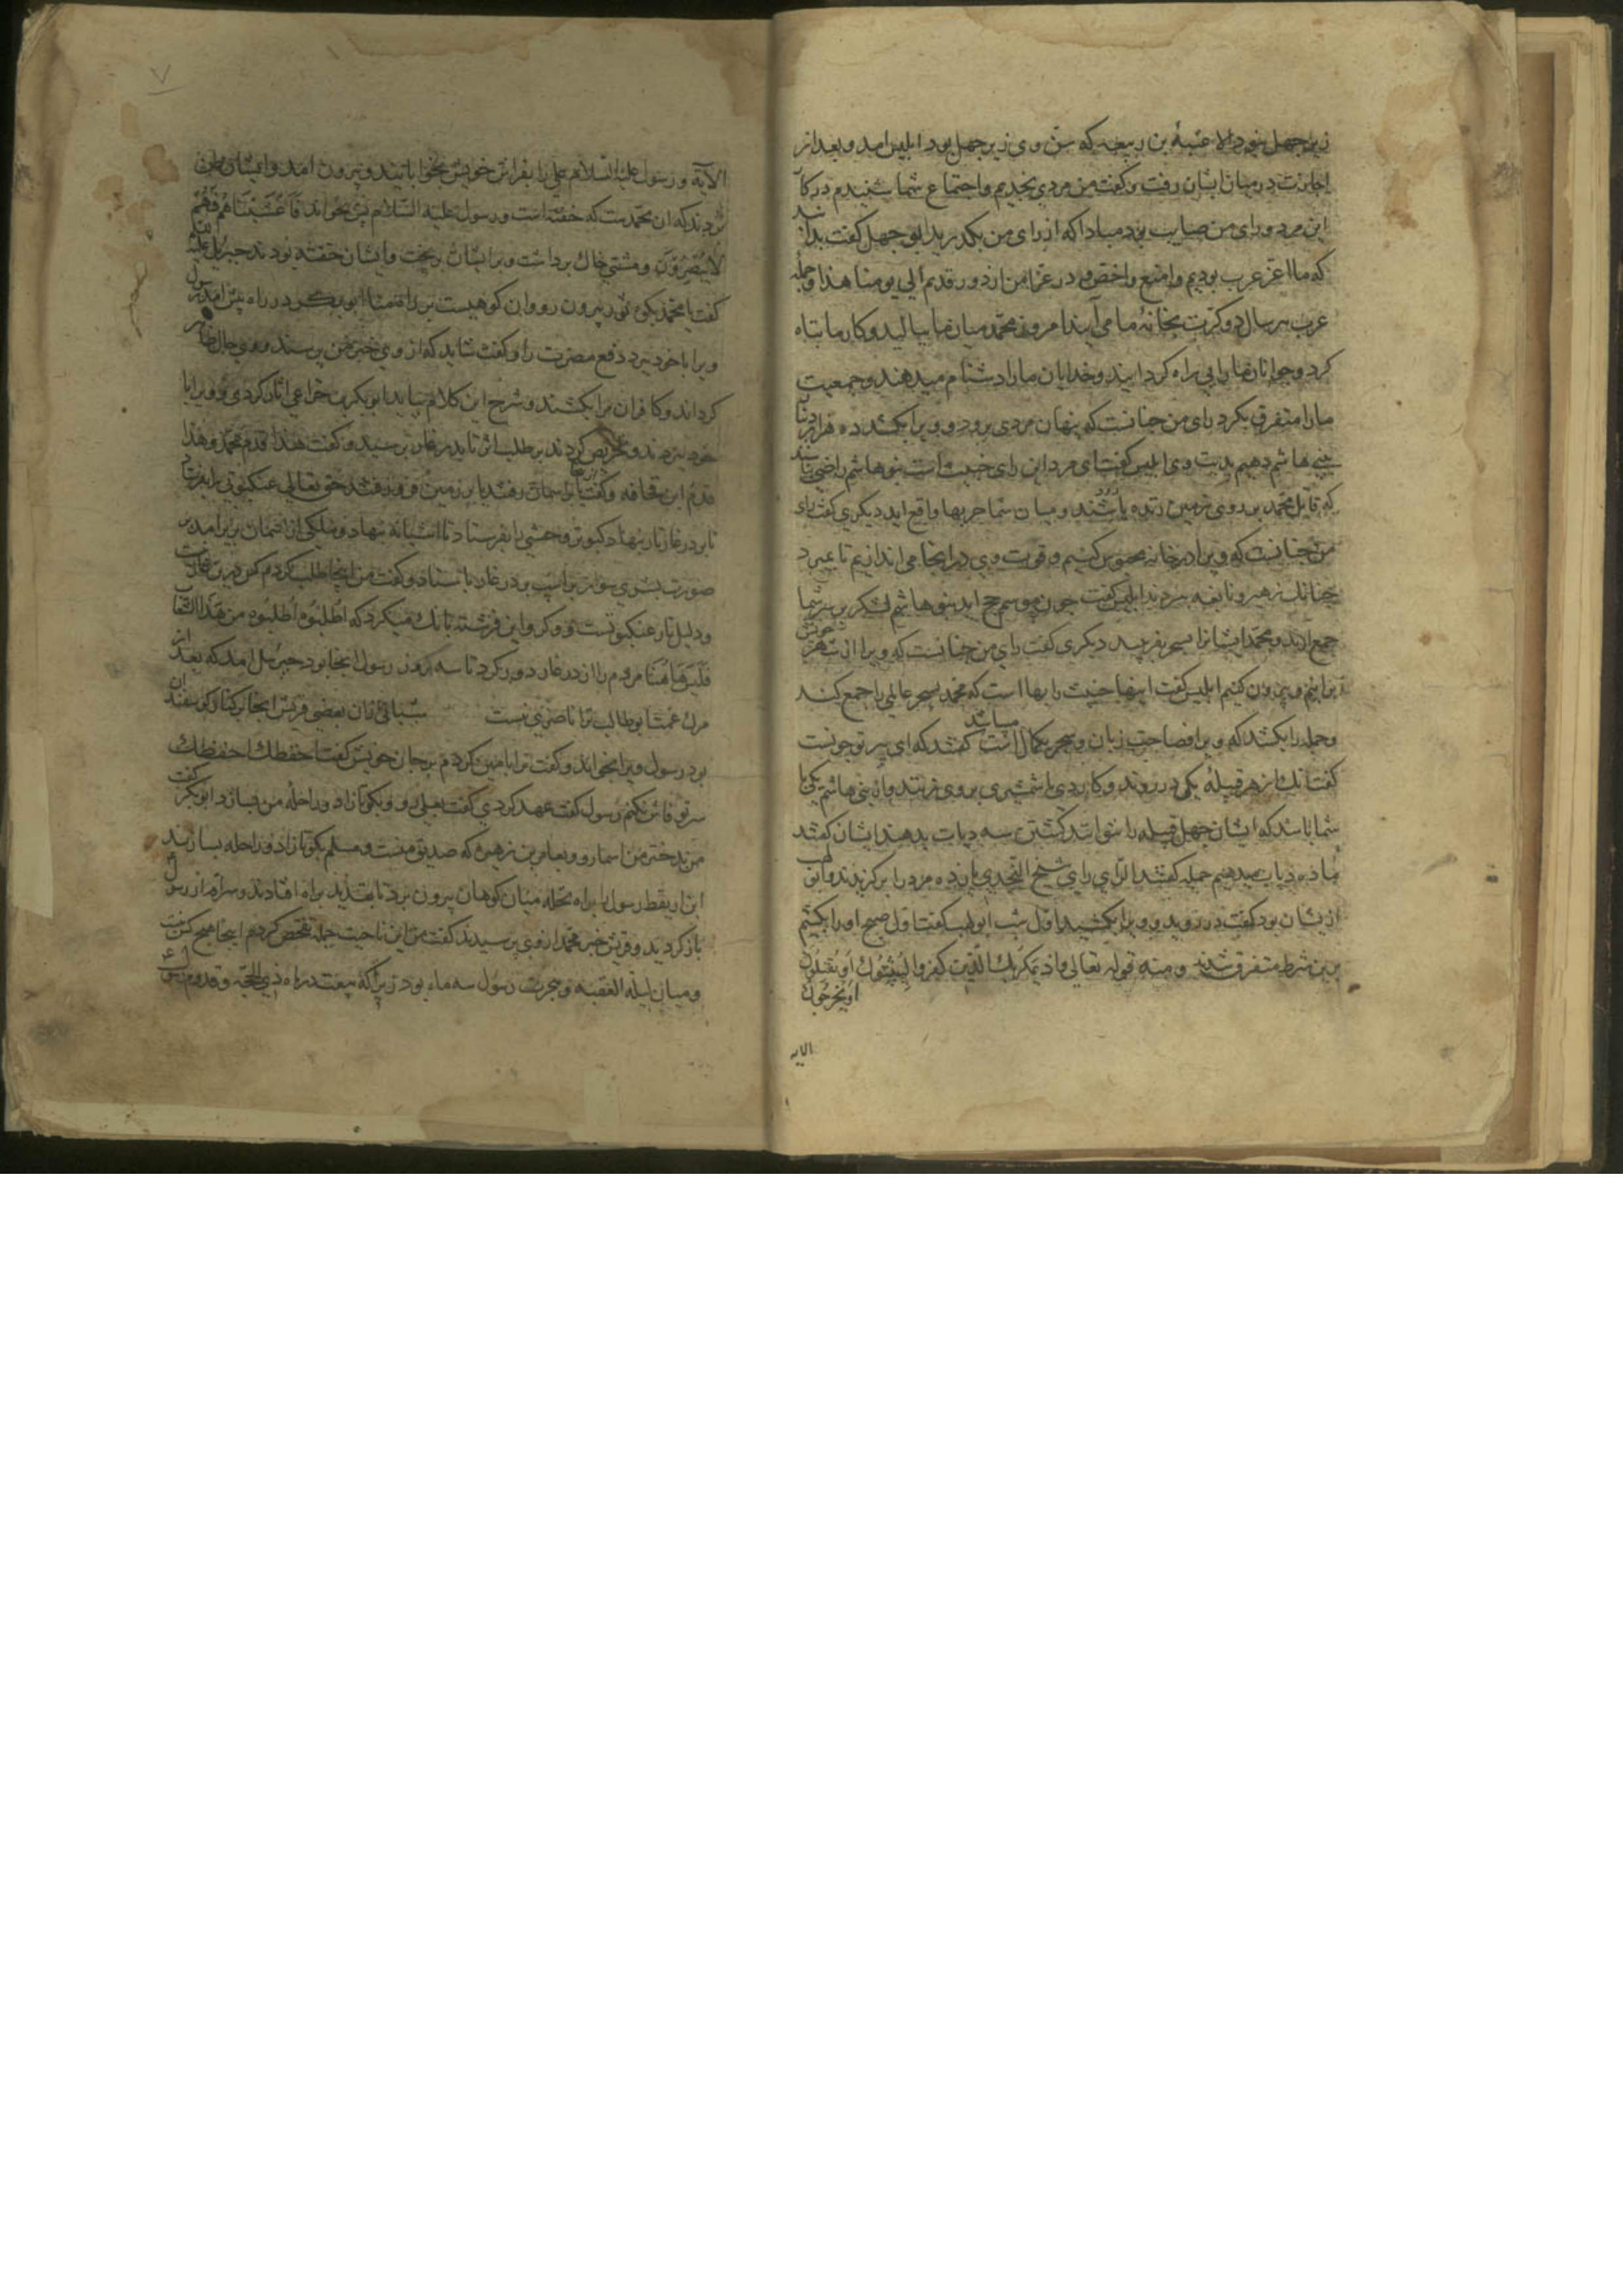 زیر چهل نبود الا عتبة بن ربیعه که سن وی زیر چهل بود ابلیس امد و بعد از
اجازت در میان ایشان رفت و گفت من مردی نجدیم و اجتماع شما شنیدم در کار
این مرد و رای من صایب بود مبادا که از رای من بگذرید ابو جهل گفت بدانید
که ما اعز عرب بودیم و امنع واخص و در عز امن از دور قدیم الی یومنا هذا و جمله
عرب هر سال دو کرت بخانهٔ ما می آیند امروز محمد میان ما ببالید و کار ما تباه
کرد و جوانان ما را بی راه گردانید و خدایان ما را دشنام میدهند و جمعیت
ما را متفرق بکرد رای من چنانست که پنهان مردی برود و ویرا بکشد ده قرار
بنی هاشم دهیم بدیت وی ابلیس گفت ای مرد این رای خبیث است بنو هاشم راضی باشند
که قاتل محمد بر روی زمین زنده باشند و میان شما حربها واقع اید دیگری گفت رای
من چنانست که ویرا در خانه محبوس کنیم و قوت وی در انجا می اندازیم تا بمیرد
چنانک زهیر و نابغه مردند ابلیس گفت چون موسم حج اید بنو هاشم لشکر بر سر شما
جمع ارند و محمد ایشانرا بسحر بفریبد دیگری گفت رای من چنانست که ویرا از شهر خویش
برانیم و بیرون کنیم ابلیس گفت اینها خبیث رایها است که محمد بسحر عالمی را جمع کند
و جمله را بکشد که ویرا فصاحت زبان و سحر بکمال است میباشد گفتند که ای پیر تو چونست
گفت انک از هر قبیله یکی در روند و کاردی یا شمشیری بر وی زنند و از بنی هاشم یکی با
شما باشد که ایشان چهل قبیله را نتوانند کشتن سه دیات بدهند ایشان گفتند
ما ده دیات میدهیم جمله گفتند الرای رای شیخ النجدی پانزده مرد را برگزیدند و ابو لهب
ازیشان بود گفت در روید و ویرا بکشید اول شب ابو لهب گفت اول صبح او را بکشیم
برین شرط متفرق شدند و منه قوله تعالی واذ یمکر بک الذین کفروا لیثبتوک او یقتلوک
او یخرجوک
الایه
الآیة و رسول علیه السلام علی را بفراش خویش بخوابانید و بیرون امد و ایشان ظن
بردند که ان محمدست که خفته است و رسول علیه السلام یس بخواند فاغشیناهم فهم
لا یبصرون و مشتی خاک برداشت و بر ایشان ریخت و ایشان خفته بودند جبرئیل علیه
گفت یا محمد بکوه ثور بیرون رو وان کوهیست بر راه منا ابو بکر در راه پیش امد رسول
ویرا با خود ببرد دفع مضرت را و گفت شاید که از وی خبر من پرسند و وی حال ظاهر
گرداند و کافران مرا بکشند و شرح این کلام بیاید ابو بکر بن خزاعی اثار کردی و ویرا با
خود ببردند و تحریص کردند بر طلب اثر تا بدر غار برسید و گفت هذا قدم محمد و هذا
قدم ابن قحافه و گفت یا بر اسمان رفتند یا بر زمین فرو رفتند حق تعالی عنکبوتی را بفرستاد
تا بر در غار تار بنهاد کبوتر وحشی را بفرستاد تا اشیانه بنهاد و ملکی از اسمان بزیر امد بر
صورت بشری سوار بر اسپ بر در غار باستاد و گفت من اینجا طلب کردم کس درین غار نیست
ودلیل تار عنکبوتست و وکر و این فرشته بانک میکرد که اطلبوه اطلبوه من هذا الشعاب
فلیس هاهنا مردم را از در غار دور کرد تا سه روز رسول انجا بود جبرئیل امد که بعد از
مرک عمت ابو طالب ترا ناصری نیست شبانی زان بعضی قریش انجا بر کنار گوسفندان
بود رسول ویرا بخواند و گفت ترا با مین کردم بر جان خویش گفت احفظک احفظک
سر تو فاش نکنم رسول گفت عهد کردی گفت بعلی رو و بکو تا زاد و راحله من بسازد ابو بکر گفت
من بدختر من اسما رو و بعامر بن زهیر که صدیق منست و مسلم بکو تا زاد و راحله بسازند
ابن اریقط رسول را براه نخله میان کوهان بیرون برد تا بقدید براه افتادند و سراقه از رسول
باز کردید و قریش خبر محمد از وی پرسیدند گفت من این ناحیت جمله تفحص کردم اینجا هیچ کس نیست
و میان لیلة العقبه و هجرت رسول سه ماه بود زیرا که بیعت در ماه ذی الحجه و قدوم رسول